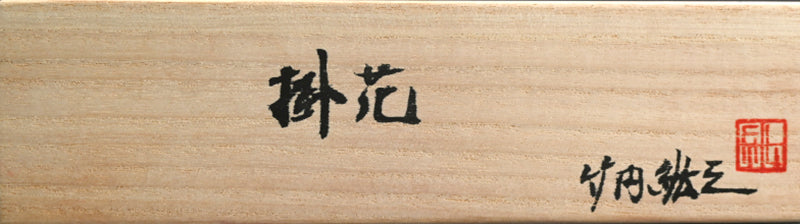 掛花
竹内紘三